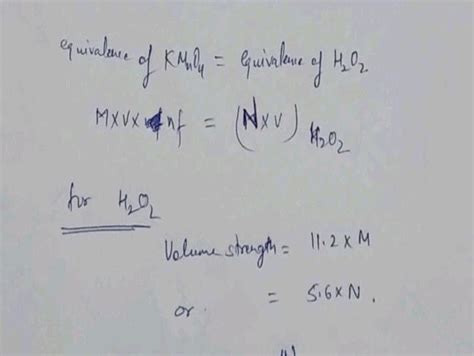 equivalence of KMnO4 = equivalence of H2O2
M×V× nf = (N×V) H2O2
for H2O2
Volume strength = 11.2 × M
or = 5.6×N.